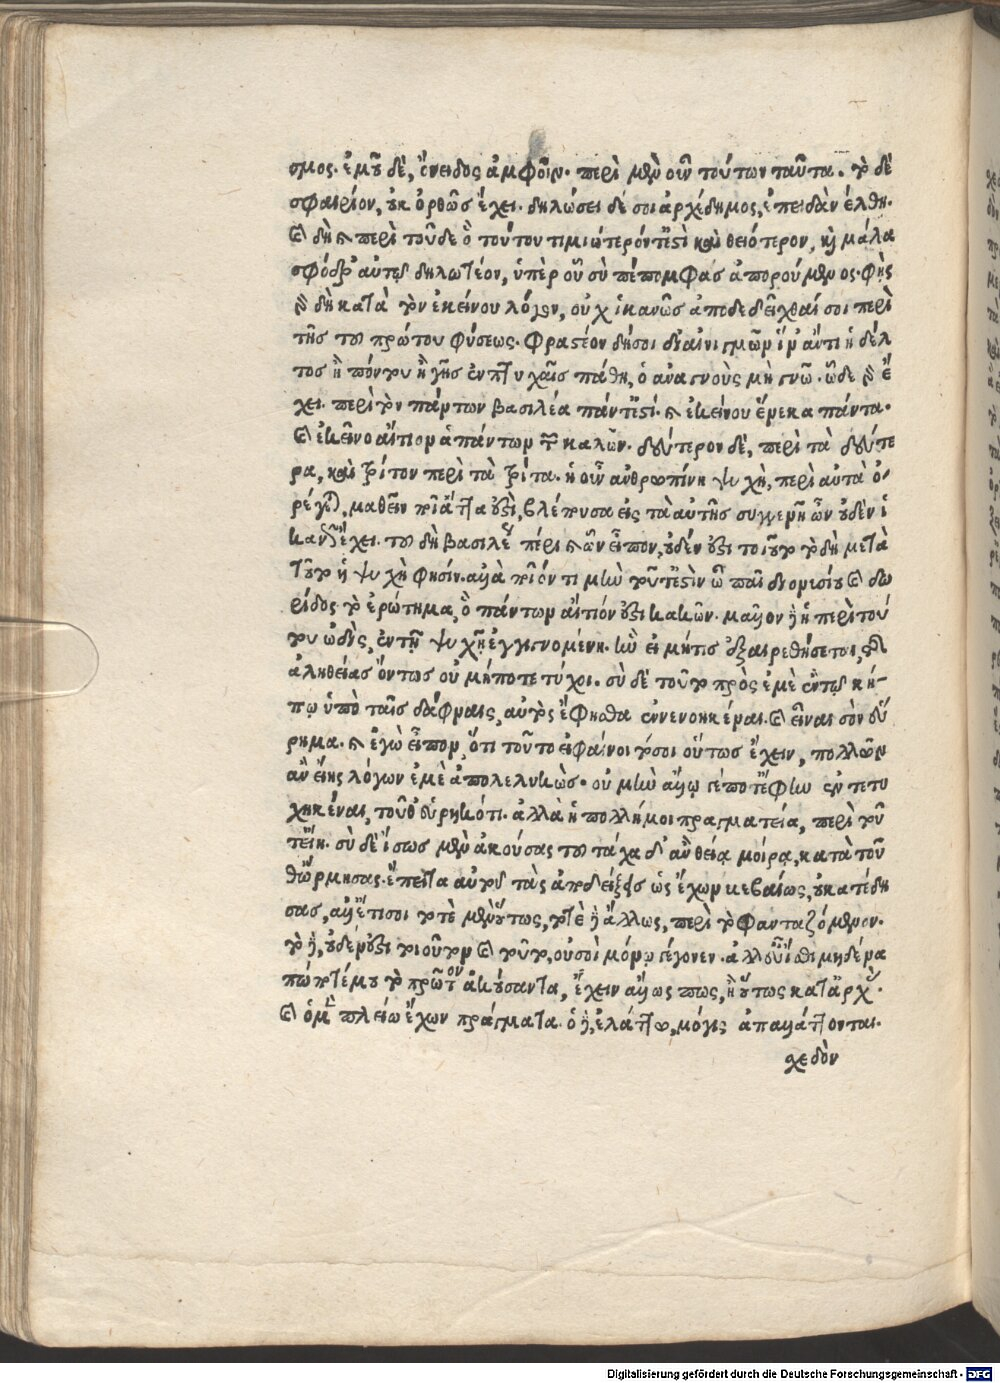 σμος· ἐμοῦ δὲ, ὄνειδος ἀμφοῖν. περὶ μὲν οὖν τούτων ταῦτα. τὸ δὲ
σφαιρίον, οὐκ ὀρθῶς ἔχει. δηλώσει δέ σοι ἀρχέδημος, ἐπειδὰν ἔλθῃ.
καὶ δὴ καὶ περὶ τοῦδε ὃ τούτου τιμιώτερόν τ' ἐστὶ καὶ θειότερον, καὶ μάλα
σφόδρ' αὐτῷ δηλωτέον, ὑπὲρ οὗ σὺ πέπομφας ἀπορούμενος. φῂς
γὰρ δὴ κατὰ τὸν ἐκείνου λόγον, οὐχ ἱκανῶς ἀποδεδεῖχθαί σοι περὶ
τῆς τοῦ πρώτου φύσεως. φραστέον δή σοι δι' αἰνιγμῶν ἵν' ἄν τι ἡ δέλ
τος ἢ πόντου ἢ γῆς ἐν πτυχαῖς πάθῃ, ὁ ἀναγνοὺς μὴ γνῷ. ὧδε γὰρ ἔ
χει. περὶ τὸν πάντων βασιλέα πάντ' ἐστί. καὶ ἐκείνου ἕνεκα πάντα.
καὶ ἐκεῖνο αἴτιον ἁπάντων τῶν καλῶν. δεύτερον δὲ, περὶ τὰ δεύτε
ρα, καὶ τρίτον περὶ τὰ τρίτα. ἡ οὖν ἀνθρωπίνη ψυχὴ, περὶ αὐτὰ ὀ-
ρέγεται, μαθεῖν ποῖ' ἄττα ἐστὶ, βλέπουσα εἰς τὰ αὑτῆς συγγενῆ ὧν οὐδὲν ἱ
κανῶς ἔχει. τοῦ δὴ βασιλέως πέρι καὶ ὧν εἶπον, οὐδέν ἐστι τοιοῦτο τὸ δὴ μετὰ
τοῦτο ἡ ψυχὴ φησίν. ἀλλὰ ποῖόν τι μὴν τοῦτ' ἐστὶν ὦ παῖ διονυσίου καὶ δω
ρίδος τὸ ἐρώτημα, ὃ πάντων αἴτιόν ἐστι κακῶν. μᾶλλον δὲ ἡ περὶ τού
του ὠδὶς, ἐν τῇ ψυχῇ ἐγγιγνομένη. ἣν εἰ μή τις ἐξαιρεθήσεται, τῆς
ἀληθείας ὄντως οὐ μήποτε τύχῃ. σὺ δὲ τοῦτο πρὸς ἐμὲ ἐν τῷ κή-
πῳ ὑπὸ ταῖς δάφναις, αὐτὸς ἔφησθα ἐννενοηκέναι. καὶ εἶναι σὸν εὕ
ρημα. καὶ ἐγὼ εἶπον, ὅτι τοῦτο εἰ φαίνοιτό σοι οὕτως ἔχειν, πολλῶν
ἂν εἴης λόγων ἐμὲ ἀπολελυκὼς. οὐ μὴν ἄλλῳ γέ ποτ' ἔφην ἐντετυ
χηκέναι, τοῦθ' εὑρηκότι. ἀλλὰ ἡ πολλή μοι πραγματεία, περὶ τοῦ
τ' εἴη. σὺ δὲ ἴσως μὲν ἀκούσας του τάχα δ' ἂν θείᾳ μοίρᾳ, κατὰ τοῦ
θ' ὥρμησας. ἔπειτα αὐτοῦ τὰς ἀποδείξεις ὡς ἔχων βεβαίως, οὐ κατέδη
σας, ἀλλ' ᾄττει σοι τοτὲ μὲν οὕτως, τοτὲ δὲ ἄλλως, περὶ τὸ φανταζόμενον.
τὸ δὲ, οὐδέν ἐστι τοιοῦτον καὶ τοῦτο, οὐ σοὶ μόνῳ γέγονεν. ἀλλ' εὖ ἴσθι μηδένα
πώποτέ μου τὸ πρῶτον ἀκούσαντα, ἔχειν ἄλλως πως, ἢ οὕτως κατ' ἀρχάς.
καὶ ὁ μὲν πλείω ἔχων πράγματα. ὁ δὲ, ἐλάττω, μόγις ἀπαλλάττονται.
σχεδὸν
Digitalisierung gefördert durch die Deutsche Forschungsgemeinschaft - DFG